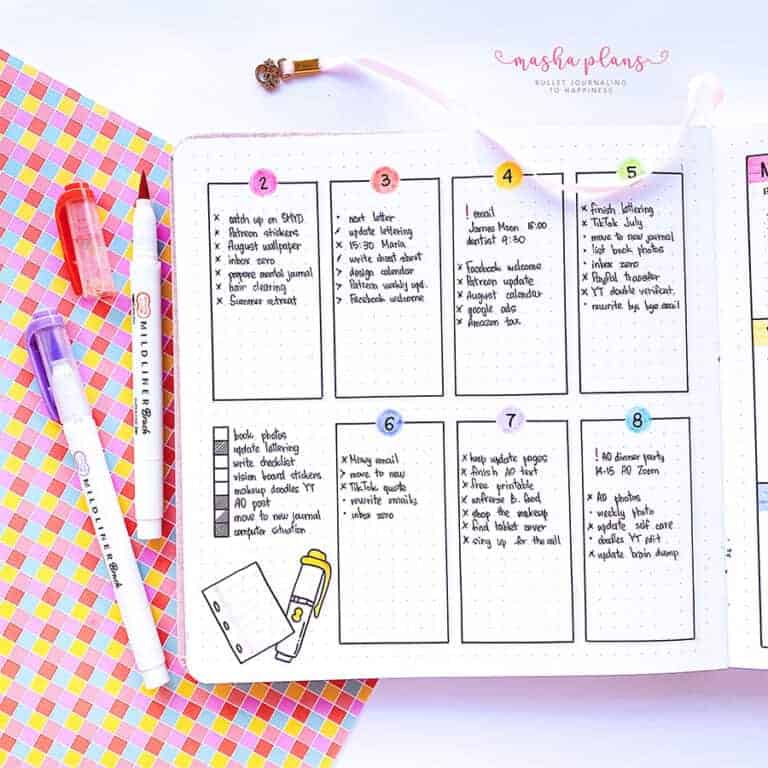 masha plans
BULLET JOURNALING
TO HAPPINESS
2
x catch up on SMYD
x Patreon stickers
x August wallpaper
x inbox zero
x prepare mental journal
x hair clearing
x Summer retreat
3
• next letter
update lettering
x 15:30 Maria
write about about
> design calendar
> Patreon weekly upd.
> Facebook welcome
4
! email
James Moon 15:00
dentist 9:30
x Facebook welcome
x Patreon update
x August calendar
x google ads
x Amazon tax
5
x finish lettering
x TikTok July
• move to new journal
• list book photos
• inbox zero
x PayPal transfer
x YT double verificat.
• rewrite bye bye email
book photos
update lettering
write checklist
vision board stickers
makeup doodles YT
AO post
move to new journal
computer situation
6
x Mowy email
> move to new
x TikTok quote
• rewrite emails
• inbox zero
7
x keep update pages
x finish AO text
x free printable
x unfreeze B. feed
x shop the makeup
x find tablet cover
x sing up for the call
8
! AO dinner party
14-15 AO Zoom
x AO photos
• weekly photo
x update self care
• doodles YT edit
x update brain dump
MILDLINER Brush
MILDLINER Brush